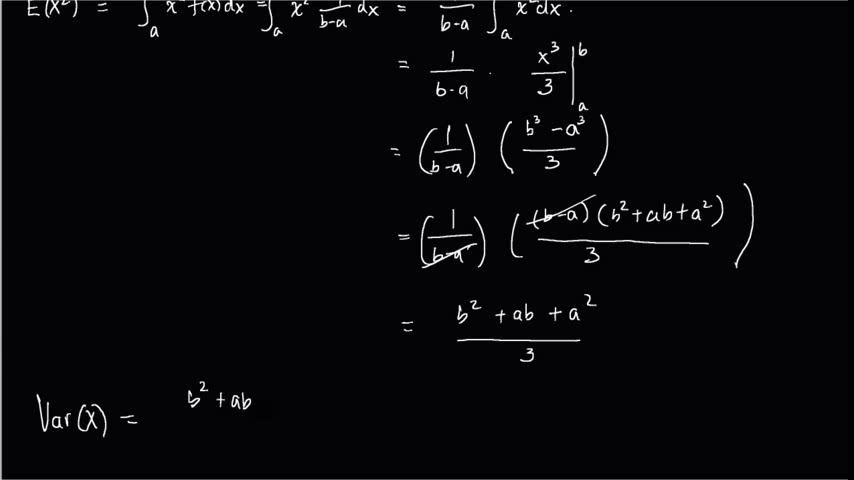 E(X²) = ∫ₐ x² f(x)dx = ∫ₐ x² 1/(b-a) dx = 1/(b-a) ∫ₐ x² dx.
= 1/(b-a) · x³/3 |ₐᵇ
= (1/(b-a)) ((b³-a³)/3)
= (1/(b-a)) ((b-a)(b²+ab+a²)/3)
= (b²+ab+a²)/3
Var(X) = b²+ab